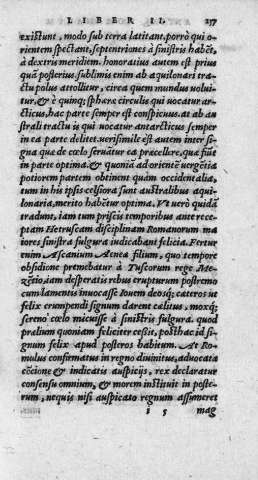 LIBER II. 237
existunt, modo sub terra latitant, porrò qui o-
rientem spectant, septentriones à sinistris habēt,
à dextris meridiem. honoratius autem est prius
quā posterius. sublimis enim ab aquilonari tra-
ctu polus attollitur, circa quem mundus uolui
tur, & è quinq; sphæræ circulis qui uocatur ar-
cticus, hac parte semper est conspicuus. at ab au
strali tractu is qui uocatur antarcticus semper
in ea parte delitet. uerisimile est autem inter si-
gna quæ de cœlo seruātur ea præcellere, quæ fiūt
in parte optima. & quoniā ad orientē uergētia
potiorem partem obtinent quàm occidentalia,
tum in his ipsis celsiora sunt australibus aqui-
lonaria, meritò habētur optima. Vt uerò quidā
tradunt, iam tum priscis temporibus ante rece-
ptam Hetruscam disciplinam Romanorum ma
iores sinistra fulgura iudicabant felicia. Fertur
enim Ascanium Aeneæ filium, quo tempore
obsidione premebatur à Tuscorum rege Me-
zētio, iam desperatis rebus erupturum postremo
cum lamentis inuocasse Iouem deosq; cæteros ut
felix erumpendi signum darent cælitus, moxq;
sereno cœlo micuisse à sinistris fulgura. quod
prælium quoniam feliciter cessit, posthac id si-
gnum felix apud posteros habitum. At Ro-
mulus confirmatus in regno diuinitus, aduocata
cōcione & indicatis auspicijs, rex declaratur
consensu omnium, & morem instituit in poste-
rum, nequis nisi auspicato regnum assumeret
i 5 mag